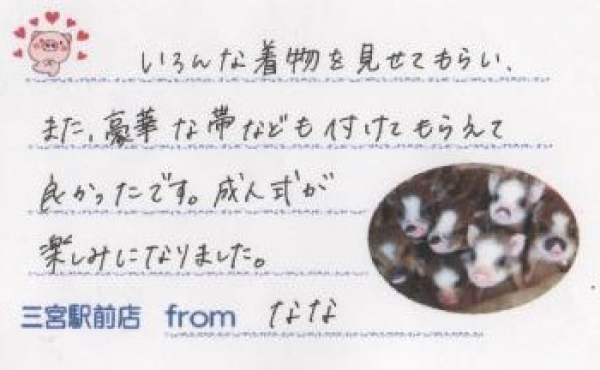 いろんな着物を見せてもらい、
また、豪華な帯なども付けてもらえて
良かったです。成人式が
楽しみになりました。
三宮駅前店 from なな